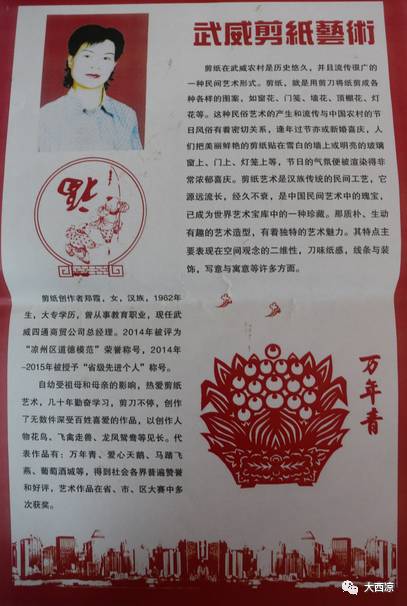 武威剪紙藝術
剪纸在武威农村是历史悠久，并且流传很广的
一种民间艺术形式。剪纸，就是用剪刀将纸剪成各
种各样的图案，如窗花、门笺、墙花、顶棚花、灯
花等。这种民俗艺术的产生和流传与中国农村的节
日风俗有着密切关系，逢年过节亦或新婚喜庆，人
们把美丽鲜艳的剪纸贴在雪白的墙上或明亮的玻璃
窗上、门上、灯笼上等，节日的气氛便被渲染得非
常浓郁喜庆。剪纸艺术是汉族传统的民间工艺，它
源远流长，经久不衰，是中国民间艺术中的瑰宝，
已成为世界艺术宝库中的一种珍藏。那质朴、生动
有趣的艺术造型，有着独特的艺术魅力。其特点主
要表现在空间观念的二维性，刀味纸感，线条与装
饰，写意与寓意等许多方面。
福
剪纸创作者郑霞，女，汉族，1962年
生，大专学历，曾从事教育职业，现任武
威四通商贸公司总经理。2014年被评为
“凉州区道德模范”荣誉称号，2014年
-2015年被授予“省级先进个人”称号。
自幼受祖母和母亲的影响，热爱剪纸
艺术，几十年勤奋学习，剪刀不停，创作
了无数件深受百姓喜爱的作品，以创作人
物花鸟、飞禽走兽、龙凤鸳鸯等见长。代
表作品有：万年青、爱心天鹅、马踏飞
燕、葡萄酒城等，得到社会各界普遍赞誉
和好评，艺术作品在省、市、区大赛中多
次获奖。
万年青
大西凉